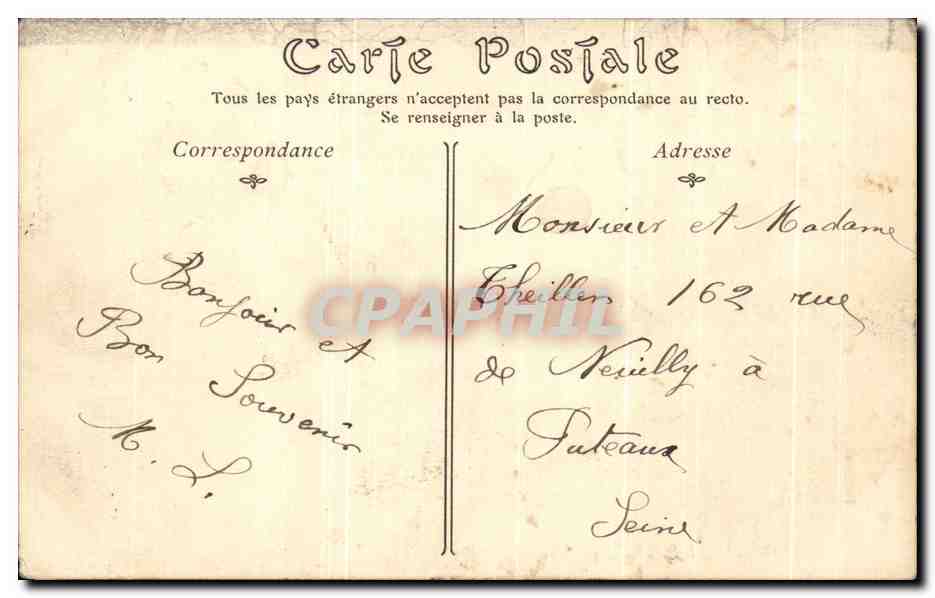 Carte Postale
Tous les pays étrangers n'acceptent pas la correspondance au recto.
Se renseigner à la poste.
Correspondance
Adresse
Bonjour et
Bon Souvenir
M. L.
Monsieur et Madame
Theiller 162 rue
de Neuilly à
Puteaux
Seine
CPAPHIL